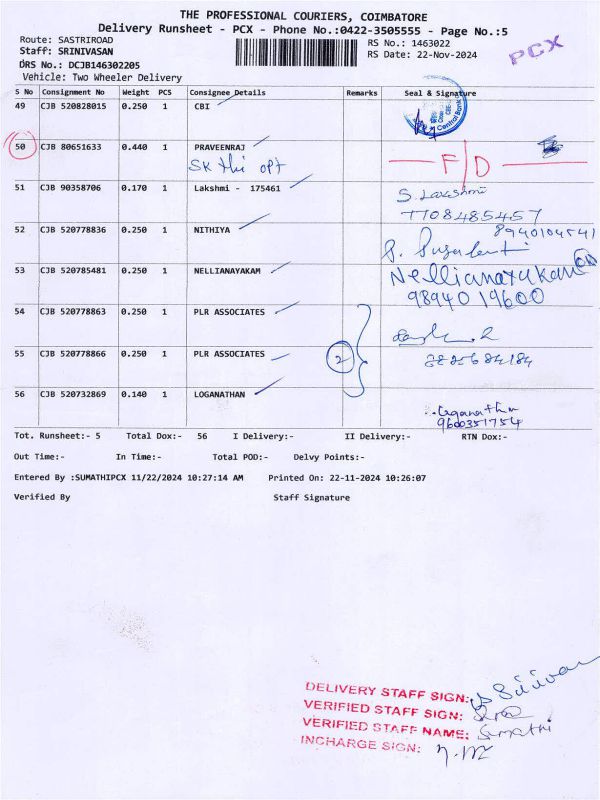 THE PROFESSIONAL COURIERS, COIMBATORE
Delivery Runsheet - PCX - Phone No.:0422-3505555 - Page No.:5
Route: SASTRIROAD
RS No.: 1463022
Staff: SRINIVASAN
RS Date: 22-Nov-2024
PCX
DRS No.: DCJB146302205
Vehicle: Two Wheeler Delivery
S No Consignment No Weight PCS Consignee Details Remarks Seal & Signature
49 CJB 520828015 0.250 1 CBI
Central Bank
50 CJB 80651633 0.440 1 PRAVEENRAJ
SK thi opt
F/D
51 CJB 90358706 0.170 1 Lakshmi - 175461
S. Lakshmi
7708485457
52 CJB 520778836 0.250 1 NITHIYA
8940104541
53 CJB 520785481 0.250 1 NELLIANAYAKAM
Nellianayakam
9894019600
54 CJB 520778863 0.250 1 PLR ASSOCIATES
55 CJB 520778866 0.250 1 PLR ASSOCIATES
2
56 CJB 520732869 0.140 1 LOGANATHAN
Loganathan
9600351754
Tot. Runsheet:- 5 Total Dox:- 56 I Delivery:- II Delivery:- RTN Dox:-
Out Time:- In Time:- Total POD:- Delvy Points:-
Entered By :SUMATHIPCX 11/22/2024 10:27:14 AM Printed On: 22-11-2024 10:26:07
Verified By Staff Signature
DELIVERY STAFF SIGN:
VERIFIED STAFF SIGN:
VERIFIED STAFF NAME: Sumathi
INCHARGE SIGN: